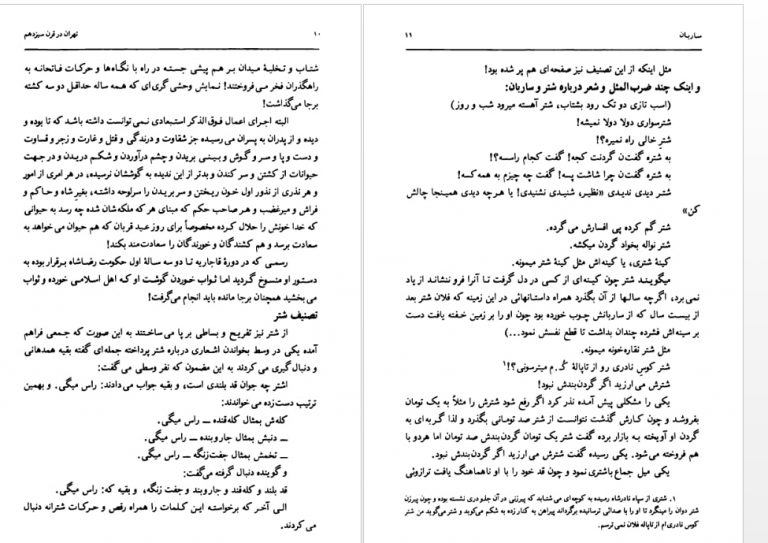 ۱۰ تهران در قرن سیزدهم
شتاب و تخلیهٔ میدان بر هم پیشی جسته در راه با نگاه‌ها و حرکات فاتحانه به
راهگذران فخر می‌فروختند! نمایش وحشی گری‌ای که همه ساله حداقل دو سه کشته
برجا می‌گذاشت!
البته اجرای اعمال فوق‌الذکر استبعادی نمی‌توانست داشته باشد که تا بوده و
دیده و از پدران به پسران می رسیده جز شقاوت و درندگی و قتل و غارت و زجر و قساوت
و دست و پا و سر و گوش و بینی بریدن و چشم درآوردن و شکم دریدن و در جهت
حیوانات از کشتن و سر کندن و بدتر از این ندیده به گوششان نرسیده، در هر امری از امور
و هر نذری از نذور اول خون ریختن و سر بریدن را سرلوحه داشته، بفیر شاه و حاکم و
فراش و میرغضب و هر صاحب حکم که مبنای هر که ملکه‌شان شده چه رسد به حیوانی
که خدا خونش را حلال کرده مخصوصاً برای روز عید قربان که هم حیوان می‌خواهد به
سعادت برسد و هم کشندگان و خورندگان را سعادت‌مند بکند!
رسمی که در دورهٔ قاجاریه تا دو سه سالهٔ اول حکومت رضاشاه برقرار بوده به
دستور او منسوخ گردید اما ثواب خوردن گوشت او که اهل اسلامی خورده و ثواب
می بخشید همچنان برجا مانده باید انجام می‌گرفت!
تصنیف شتر
از شتر نیز تفریح و بساطی بر پا می‌ساختند به این صورت که جمعی فراهم
آمده یکی در وسط بخواندن اشعاری درباره شتر پرداخته جمله‌ای گفته بقیه همدهانی
و دنبال‌گیری می کردند به این مضمون که نفر وسطی می‌گفت:
اشتر چه جوان قد بلندی است، و بقیه جواب می‌دادند: راس میگی. و بهمین
ترتیب دست‌زده می‌خواندند:
کله‌ش بمثال کله‌قنده ــ راس میگی.
ــ دنبش بمثال جاروبنده ــ راس میگی.
ــ تخمش بمثال جفت‌زنگه ــ راس میگی.
و گوینده دنبال گرفته می‌گفت:
قد بلند و کله‌قند و جاروبند و جفت زنگه، و بقیه که: راس میگی.
الی آخر که برخواسته این کلمات را همراه رقص و حرکات شترانه دنبال
می کردند.
ساربان ۱۱
مثل اینکه از این تصنیف نیز صفحه‌ای هم پر شده بود!
و اینک چند ضرب‌المثل و شعر درباره شتر و ساربان:
(اسب تازی دو تک رود بشتاب، شتر آهسته میرود شب و روز)
شترسواری دولا دولا نمیشه!
شتر خالی راه نمیره؟!
به شتره گفتن گردنت کجه! گفت کجام راسه؟!
به شتره گفت‌ن چرا شاشت پسه! گفت چه چیزم به همه‌کسه!
شتر دیدی ندیدی «نظیر، شنیدی نشنیدی! یا هرچه دیدی همینجا چالش
کن»
شتر گم کرده پی افسارش می‌گرده.
شتر نواله بخواد گردن میکشه.
کینهٔ شتری، یا کینه‌اش مثل کینهٔ شتر میمونه.
میگویند شتر چون کینه‌ای از کسی در دل گرفت تا آنرا فرو ننشاند از یاد
نمی‌برد، اگرچه سالها از آن بگذرد همراه داستانهائی در این زمینه که فلان شتر بعد
از بیست سال که از ساربانش چوب خورده بود چون او را بر زمین خفته یافت دست
بر سینه‌اش فشرده چندان بداشت تا قطع نفسش نمود...)
مثل شتر نقاره‌خونه میمونه.
شتر کوس نادری رو از تاپالهٔ کُ. م میترسونی؟!¹
شترش می ارزید اگر گردن‌بندش نبود!
یکی را مشکلی پیش آمده نذر کرد اگر رفع شود شترش را مثلاً به یک تومان
بفروشد و چون کارش گذشت نتوانست از شتر صد تومانی بگذرد و لذا گربه‌ای به
گردن او آویخته به بازار برده گفت شتر یک تومان گردن‌بندش صد تومان اما هردو با
هم فروخته می‌شود. یکی رسیده گفت شترش می ارزید اگر گردن‌بندش نبود.
یکی میل جماع باشتری نمود و چون قد خود را با او ناهماهنگ یافت ترازوئی
۱. شتری از سپاه نادرشاه رمیده به کوچه‌ای می شتابد که پیرزنی در آن جلو دری نشسته بوده و چون پیرزن
شتر دوان را مینگرد تا او را با صدائی ترسانیده برگرداند پیراهن به کنار زده به شکم می‌کوبد و شتر می‌گوید من شتر
کوس نادری‌ام از تاپاله فلان نمی ترسم.